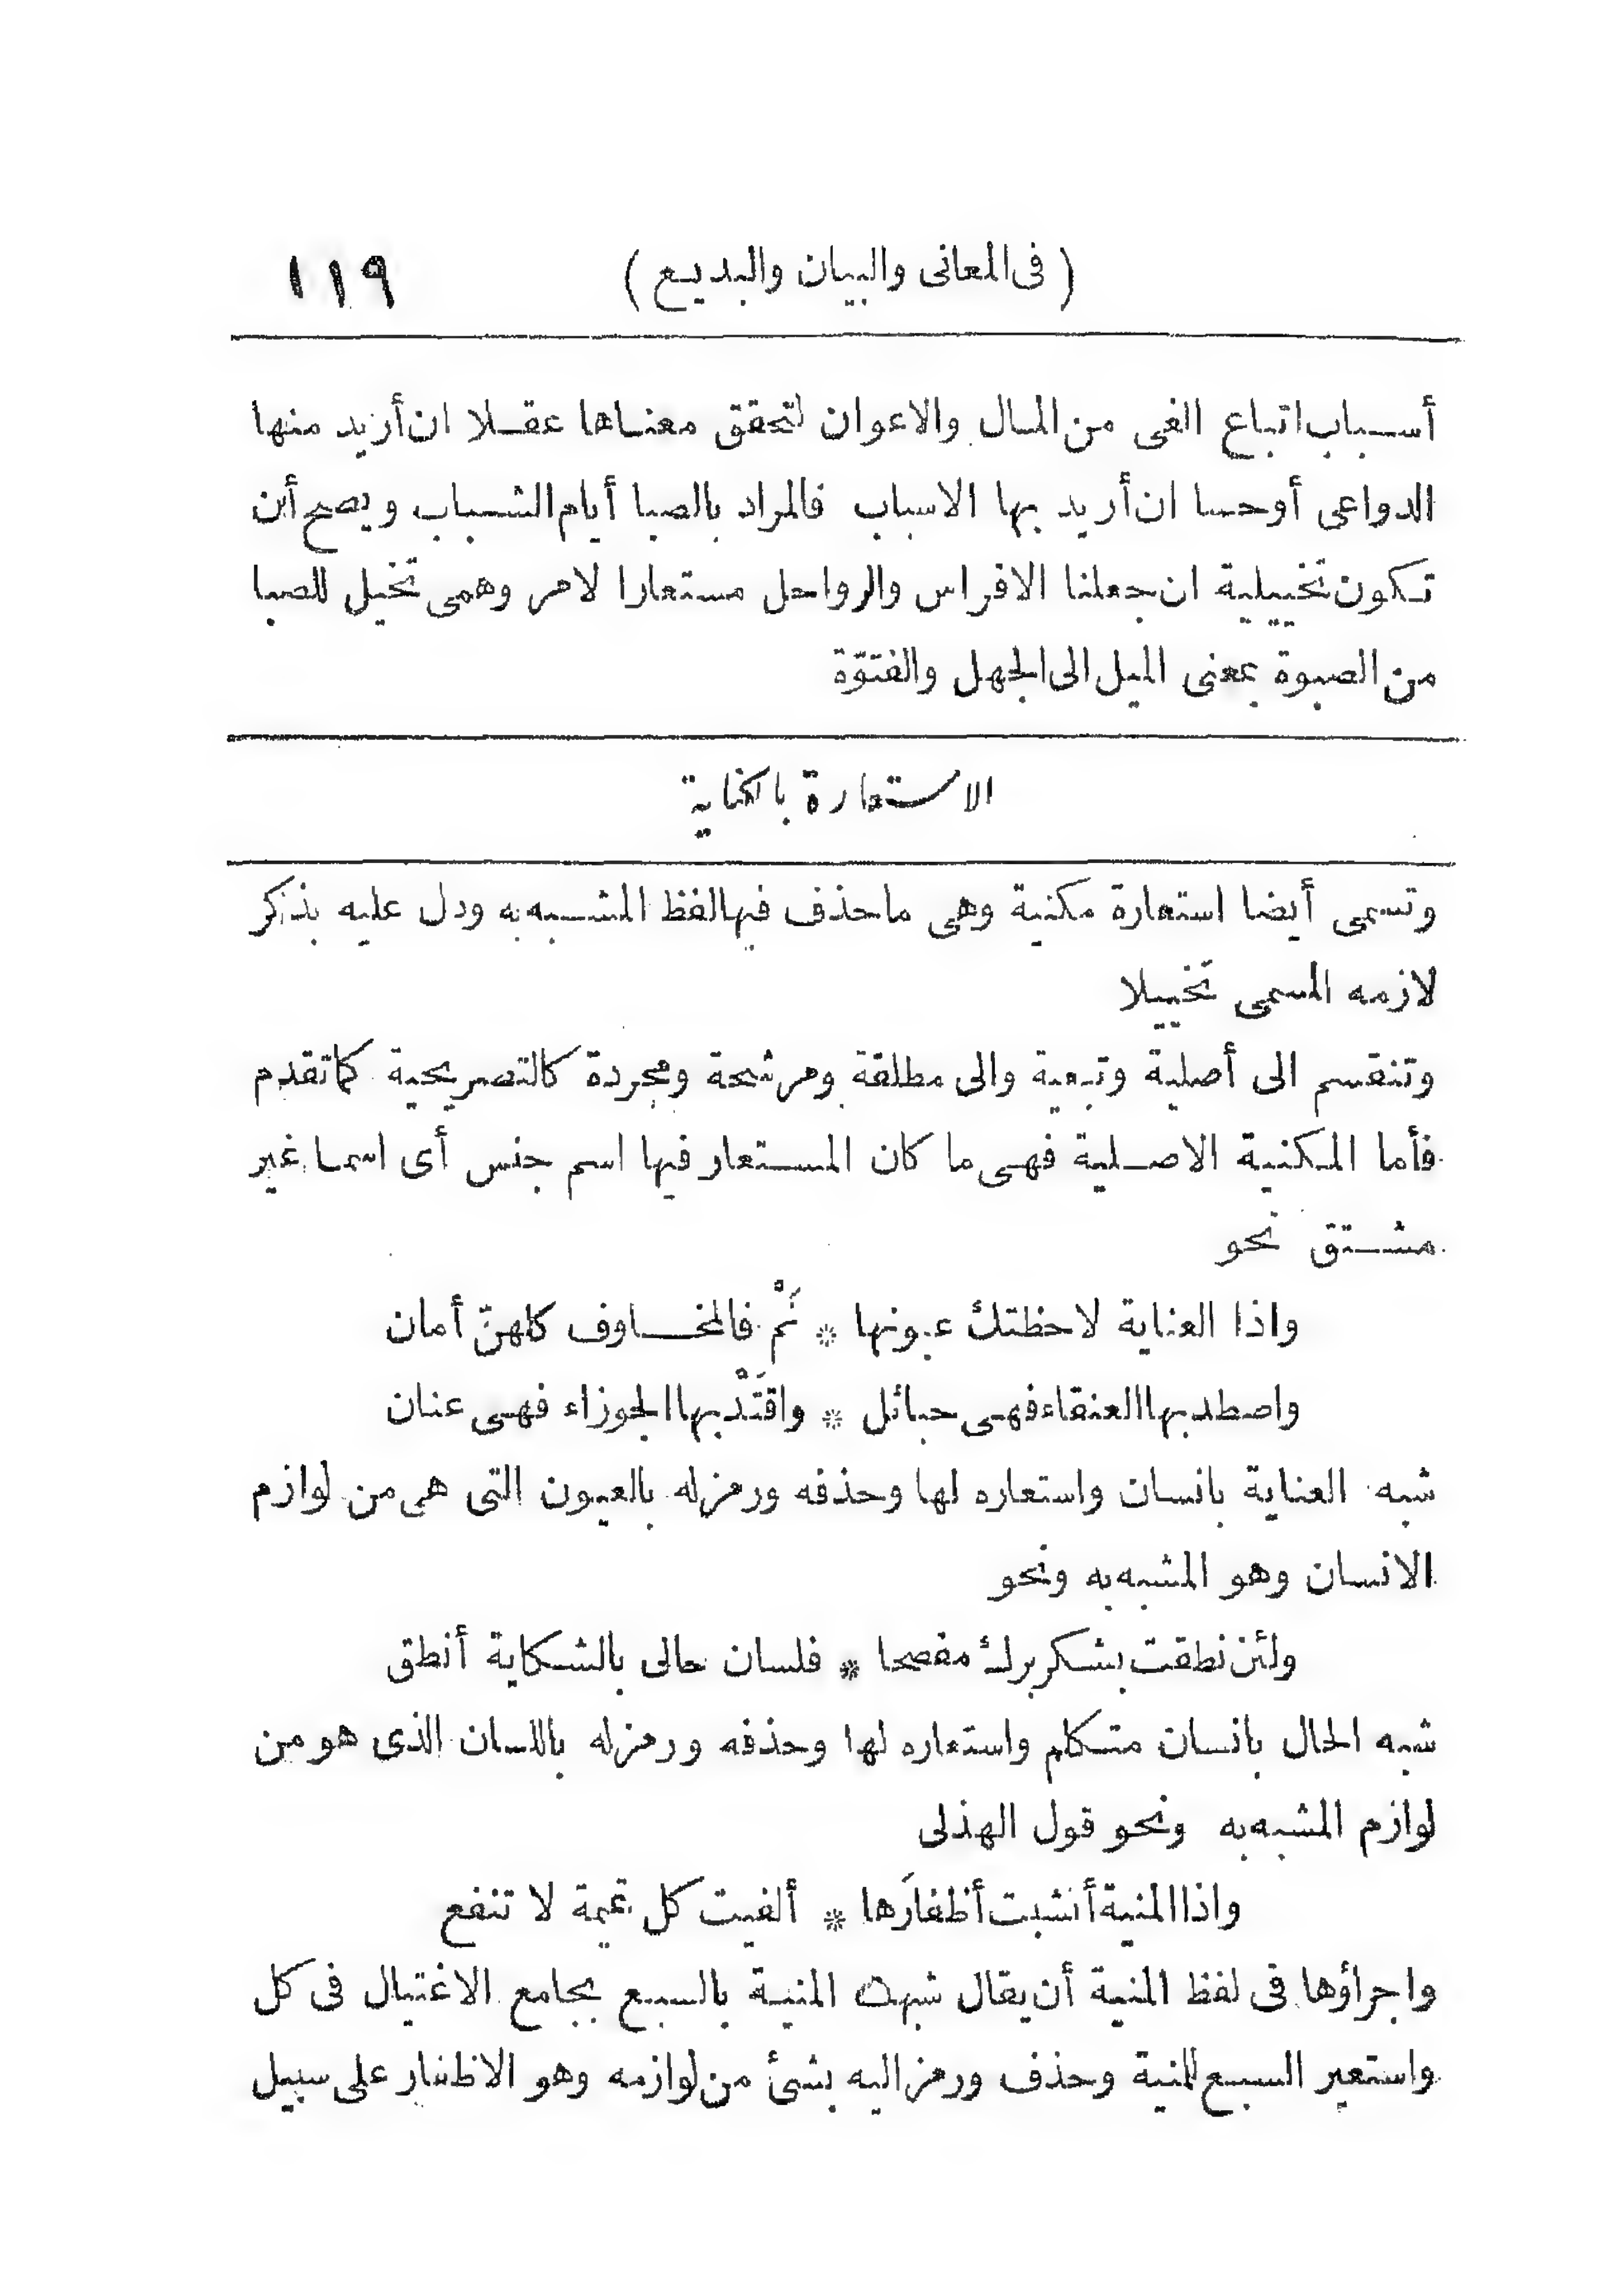 (فى المعانى والبيان والبديع) ١١٩
أسباب اتباع الغى من المال والاعوان لتحقق معناها عقلا ان أريد منها
الدواعى أوحسا ان أريد بها الاسباب فالمراد بالصبا أيام الشباب ويصح أن
تكون تخييلية ان جعلنا الافراس والرواحل مستعارا لامر وهمى تخيل للصبا
من الصبوة بمعنى الميل الى الجهل والفتوّة
الاستعارة بالكناية
وتسمى أيضا استعارة مكنية وهى ما حذف فيها لفظ المشبه به ودل عليه بذكر
لازمه المسمى تخييلا
وتنقسم الى أصلية وتبعية والى مطلقة ومرشحة ومجردة كالتصريحية كما تقدم
فأما المكنية الاصلية فهى ما كان المستعار فيها اسم جنس أى اسما غير
مشتق نحو
واذا العناية لاحظتك عيونها * نَمْ فالمخاوف كلهنّ أمان
واصطد بها العنقاء فهى حبائل * واقتَدْ بها الجوزاء فهى عنان
شبه العناية بانسان واستعاره لها وحذفه ورمز له بالعيون التى هى من لوازم
الانسان وهو المشبه به ونحو
ولئن نطقت بشكر برك مفصحا * فلسان حالى بالشكاية أنطق
شبه الحال بانسان متكلم واستعاره لها وحذفه ورمز له باللسان الذى هو من
لوازم المشبه به ونحو قول الهذلى
واذا المنية أنشبت أظفارَها * ألفيت كل تميمة لا تنفع
واجراؤها فى لفظ المنية أن يقال شبهت المنية بالسبع بجامع الاغتيال فى كل
واستعير السبع للمنية وحذف ورمز اليه بشئ من لوازمه وهو الاظفار على سبيل